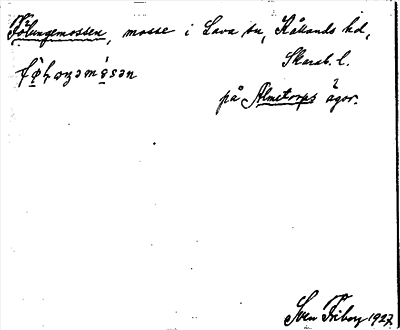 Fölungemossen, mosse i Lava sn, Kållands hd,
Skarab. l.
på Almetorps ägor.
Sven Friberg 1927